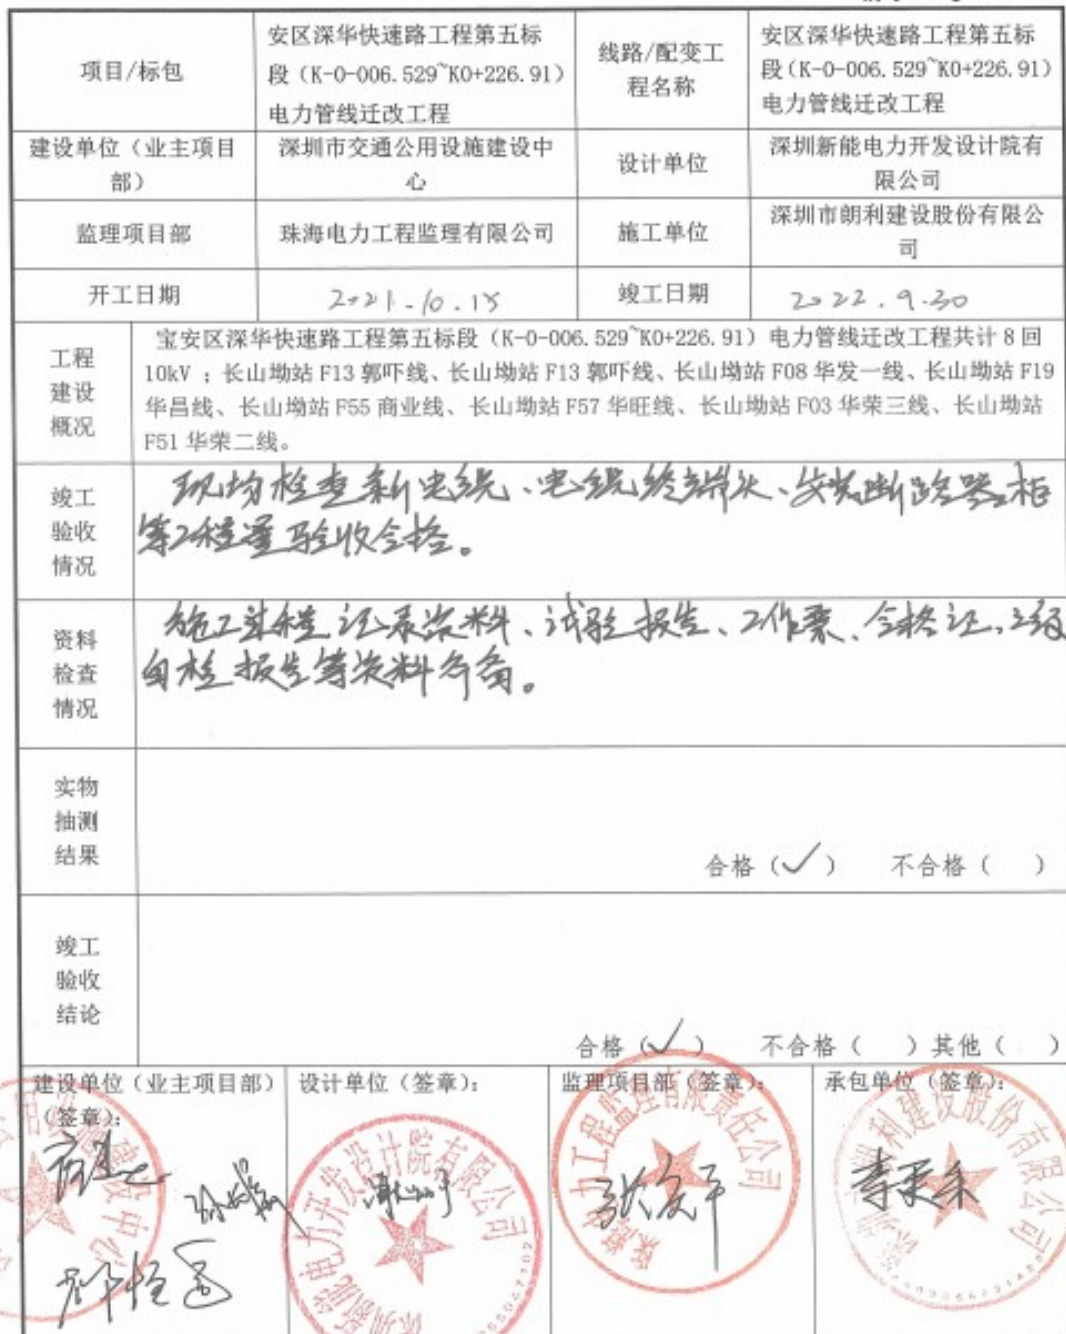 项目/标包
安区深华快速路工程第五标
段（K-0-006.529~K0+226.91）
电力管线迁改工程
线路/配变工
程名称
安区深华快速路工程第五标
段（K-0-006.529~K0+226.91）
电力管线迁改工程
建设单位（业主项目
部）
深圳市交通公用设施建设中
心
设计单位
深圳新能电力开发设计院有
限公司
监理项目部
珠海电力工程监理有限公司
施工单位
深圳市朗利建设股份有限公
司
开工日期
2021.10.15
竣工日期
2022.9.30
工程
建设
概况
宝安区深华快速路工程第五标段（K-0-006.529~K0+226.91）电力管线迁改工程共计8回
10kV ；长山坳站 F13 郭吓线、长山坳站 F13 郭吓线、长山坳站 F08 华发一线、长山坳站 F19
华昌线、长山坳站 F55 商业线、长山坳站 F57 华旺线、长山坳站 F03 华荣三线、长山坳站
F51 华荣二线。
竣工
验收
情况
现场检查新电缆、电缆终端头、安装断路器柜
等工程量验收合格。
资料
检查
情况
施工过程记录资料、试验报告、工作票、合格证、三级
自检报告等资料齐备。
实物
抽测
结果
合格（✓） 不合格（ ）
竣工
验收
结论
合格（✓） 不合格（ ）其他（ ）
建设单位（业主项目部）
（签章）：
设计单位（签章）：
监理项目部（签章）：
承包单位（签章）：
电力开发设计院有限公司
力工程监理有限责任公司
朗利建设股份有限公司
张友平